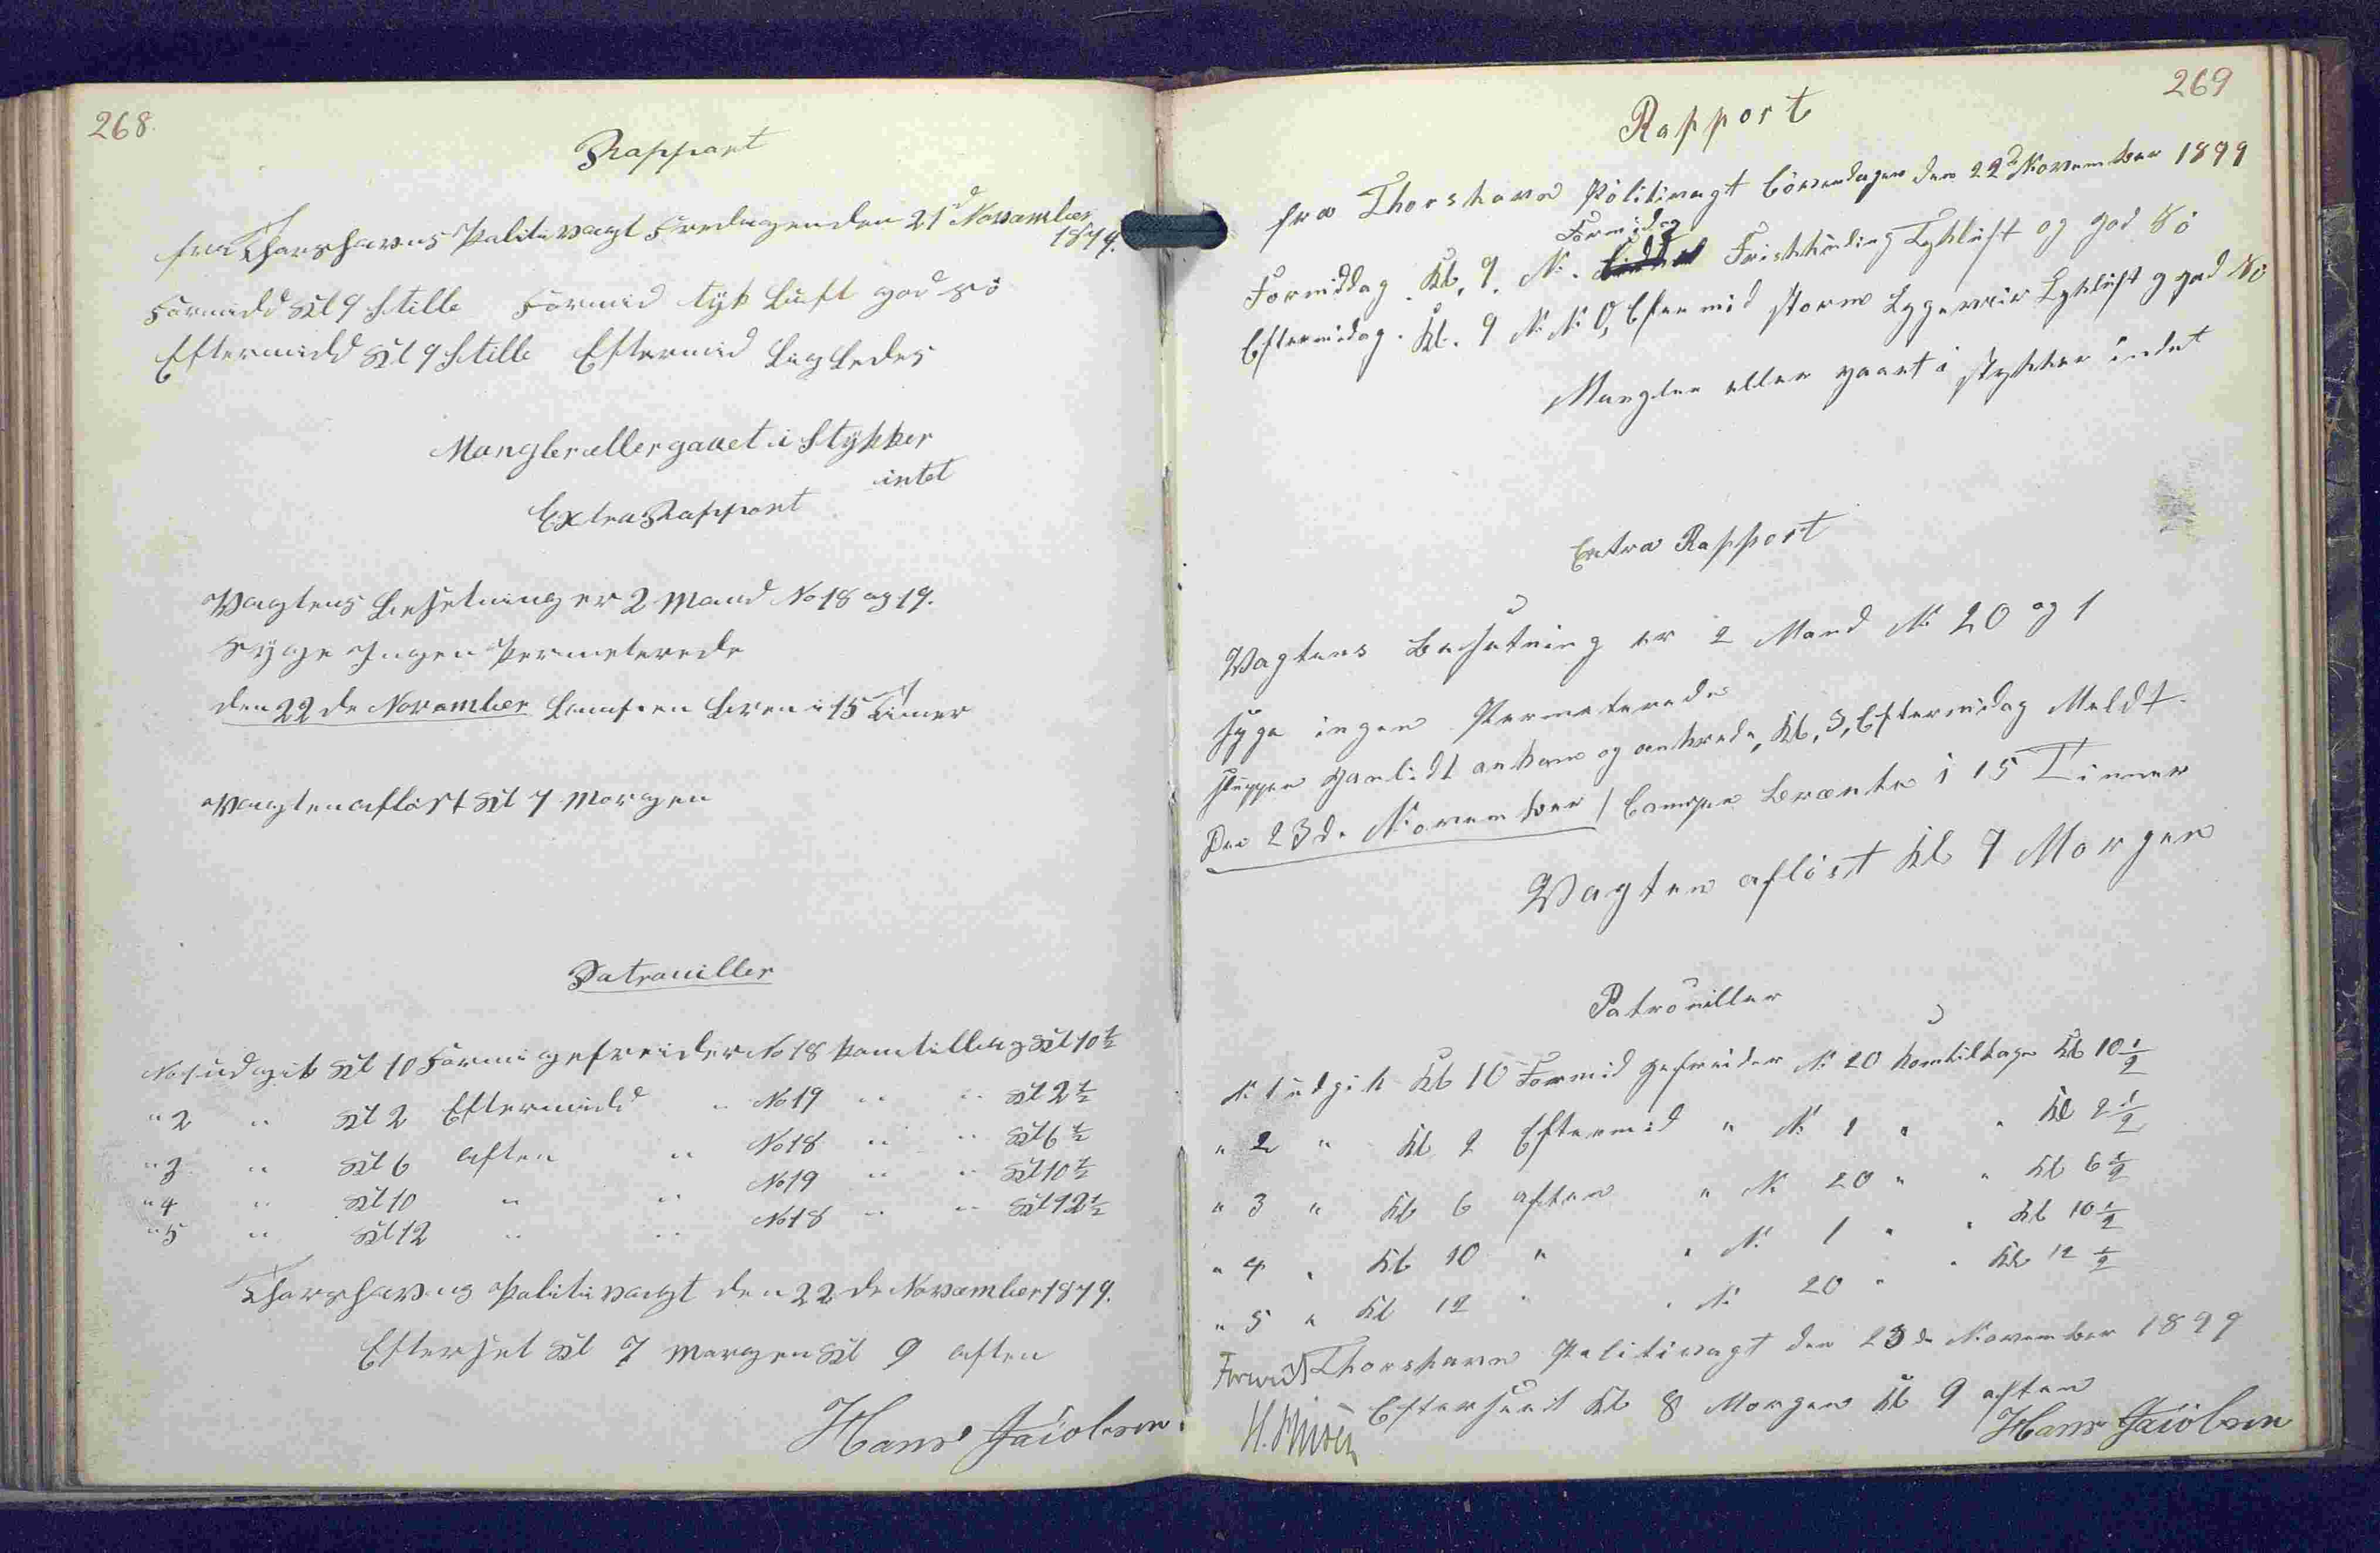 268
Rapport
fra Thorshavns Politivagt Fredagen den 21d November
1879.
Formidd Kl 9 Stille Formid tyk Luft god Sö
Eftermidd Kl 9 Stille Eftermid Ligeledes
Mangler eller gaaet i Stykker
intet
Extra Rapport
Vagtens Besetning er 2 Mand No 18 og 19.
Syge Ingen Permeterede
den 22 de November Lampen Bren i 15 Timer
Vagten aflöst Kl 7 Morgen
Patrouiller
No 1 udgik Kl 10 Formi gefreider No 18 kom tilbag Kl 10 1/2
" 2 " Kl 2 Eftermidd " No 19 " " Kl 2 1/2
" 3 " Kl 6 aften " No 18 " " Kl 6 1/2
" 4 " Kl 10 " " No 19 " " Kl 10 1/2
" 5 " Kl 12 " " No 18 " " Kl 12 1/2
Thorshavns Politivagt den 22 de November 1879.
Efterset Kl 7 Morgen Kl 9 aften
Hans Jacobsen
269
Rapport
fra Thorshavn Politivagt Löverdagen den 22d November 1879
Formidag
Formiddag Kl. 9. N. Friskkuling Tykluft og god Sö
Eftermidag. Kl. 9 N. N. O, Eftermid storm Tykluft g god Sö
Mangler eller gaaet i stykker indet
Extra Rapport
Vagtens Besetning er 2 Mand No 20 og 1
Syge ingen Permeterede
Sluppen ankom og ankrede, Kl, 3, Eftermidag Meldt.
Den 23 de November / Lampen Brænte i 15 Timmer
Vagten aflöst Kl 7 Morgen
Patrouiller
N. 1 udgik Kl 10 Formid gefreider No 20 komtilbage Kl 10 1/2
" 2 " Kl 2 Eftermid " No 1 " " Kl 2 1/2
" 3 " Kl 6 aften " No 20 " " Kl 6 1/2
" 4 " Kl 10 " " No 1 " " Kl 10 1/2
" 5 " Kl 12 " " No 20 " " Kl 12 1/2
Thorshavn Politivagt den 23 de November 1879
Efterseet Kl 8 Morgen Kl 9 aften
Hans Jacobsen